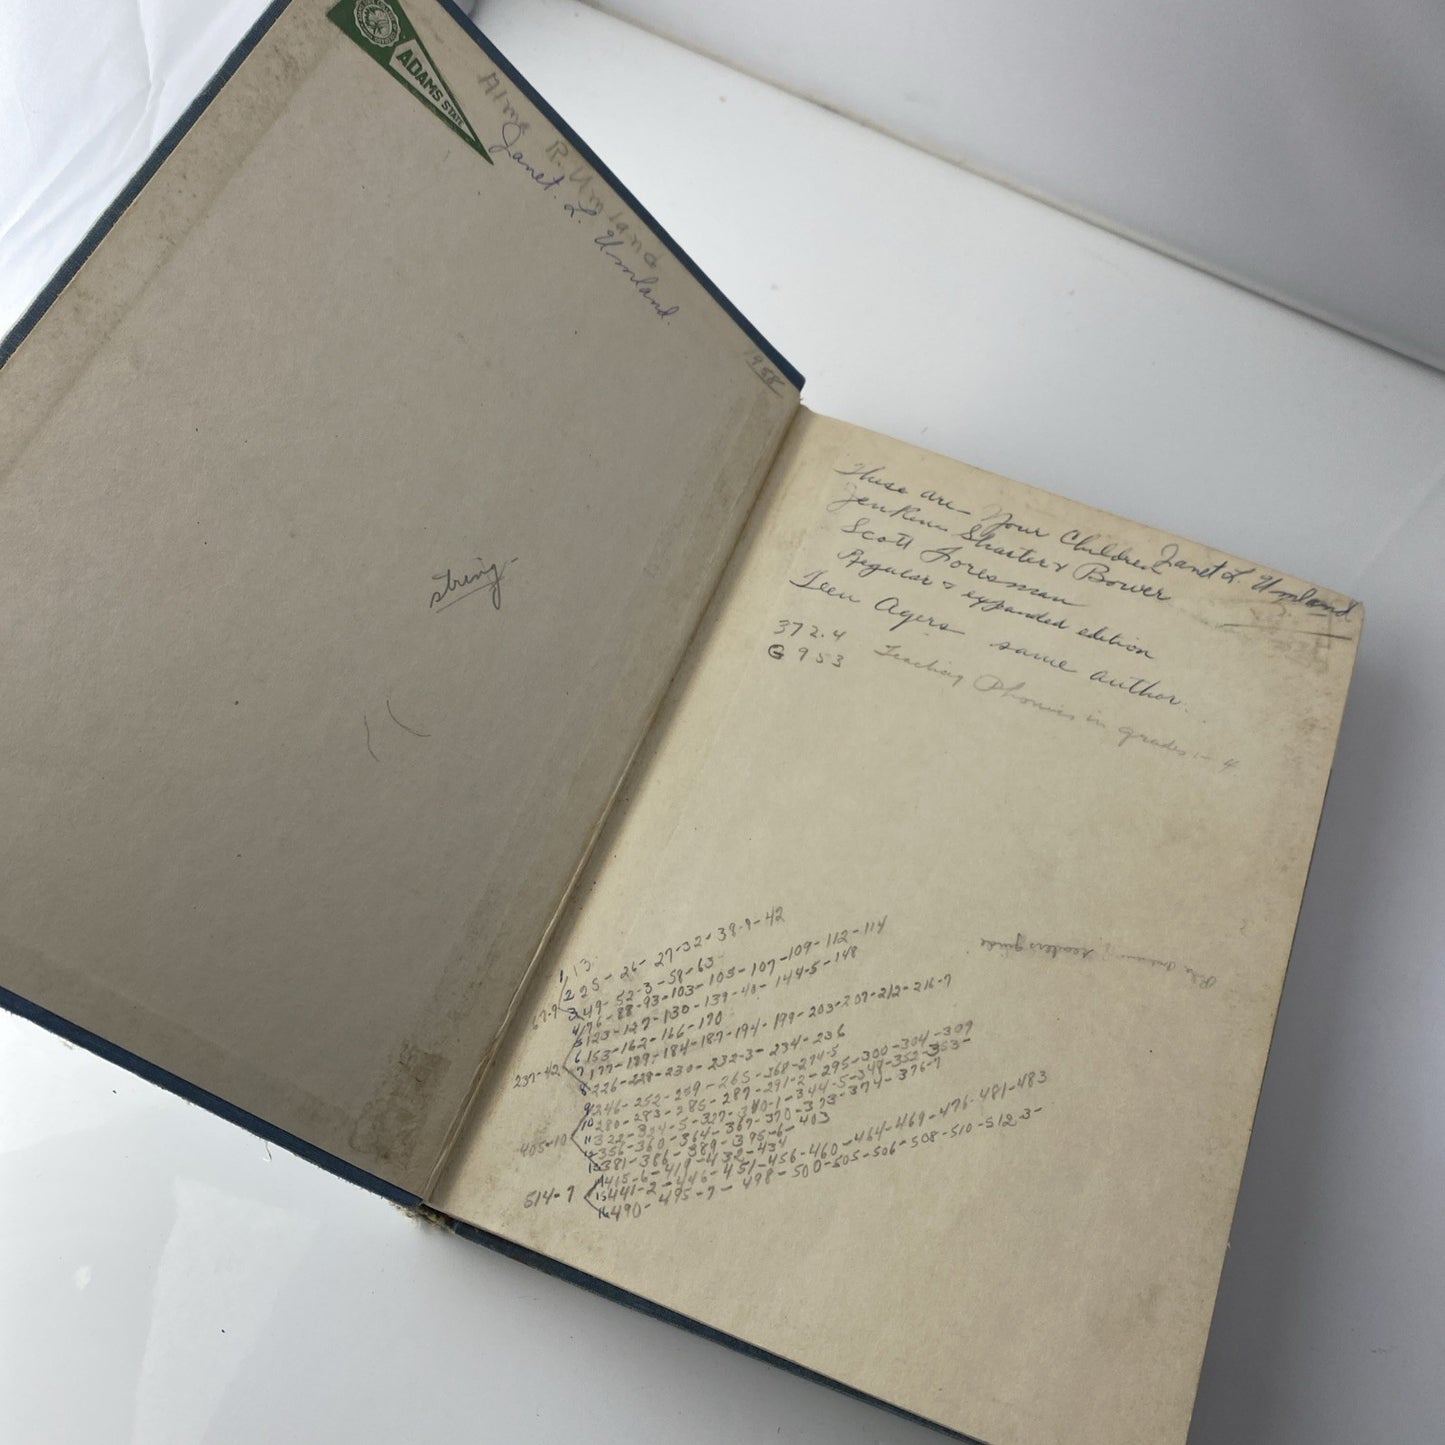 ADAMS STATE
R. Umland
Janet. L. Umland.
1958
string
These are Your Children Janet L. Umland
Jenkins Shacter & Bower
Scott Foresman
Regular & expanded edition
Teen Agers same author.
372.4 Teaching Phonics in grades 1-4
G 953
teachers guide
1, 13.
2 25- 26- 27-32- 38-9-42
67-9 3 49- 52-3-58-63-
4 76-88-93-103- 105- 107-109- 112-114
5 123-127-130- 139-40- 144-5-148
6 153-162-166-170
237-42 7 177- 184-187-194-199-203-207-212-216-7
8 226-228-230-232-3-234-236
9 246- 252- 259- 265- 268-274-5
10 280- 283- 285- 287- 291-2-295-300-304-309
405-10 11 322- 344-5-349-352-353-
12 356-360-364-367-370-373-374-376-7
13 381-386-389-395-6-403
14 415-6-419-432-434
514-7 15 441-2-446-451-456-460-464-469-476-481-483
16 490- 495-7- 498- 500-505-506-508-510-512 3-